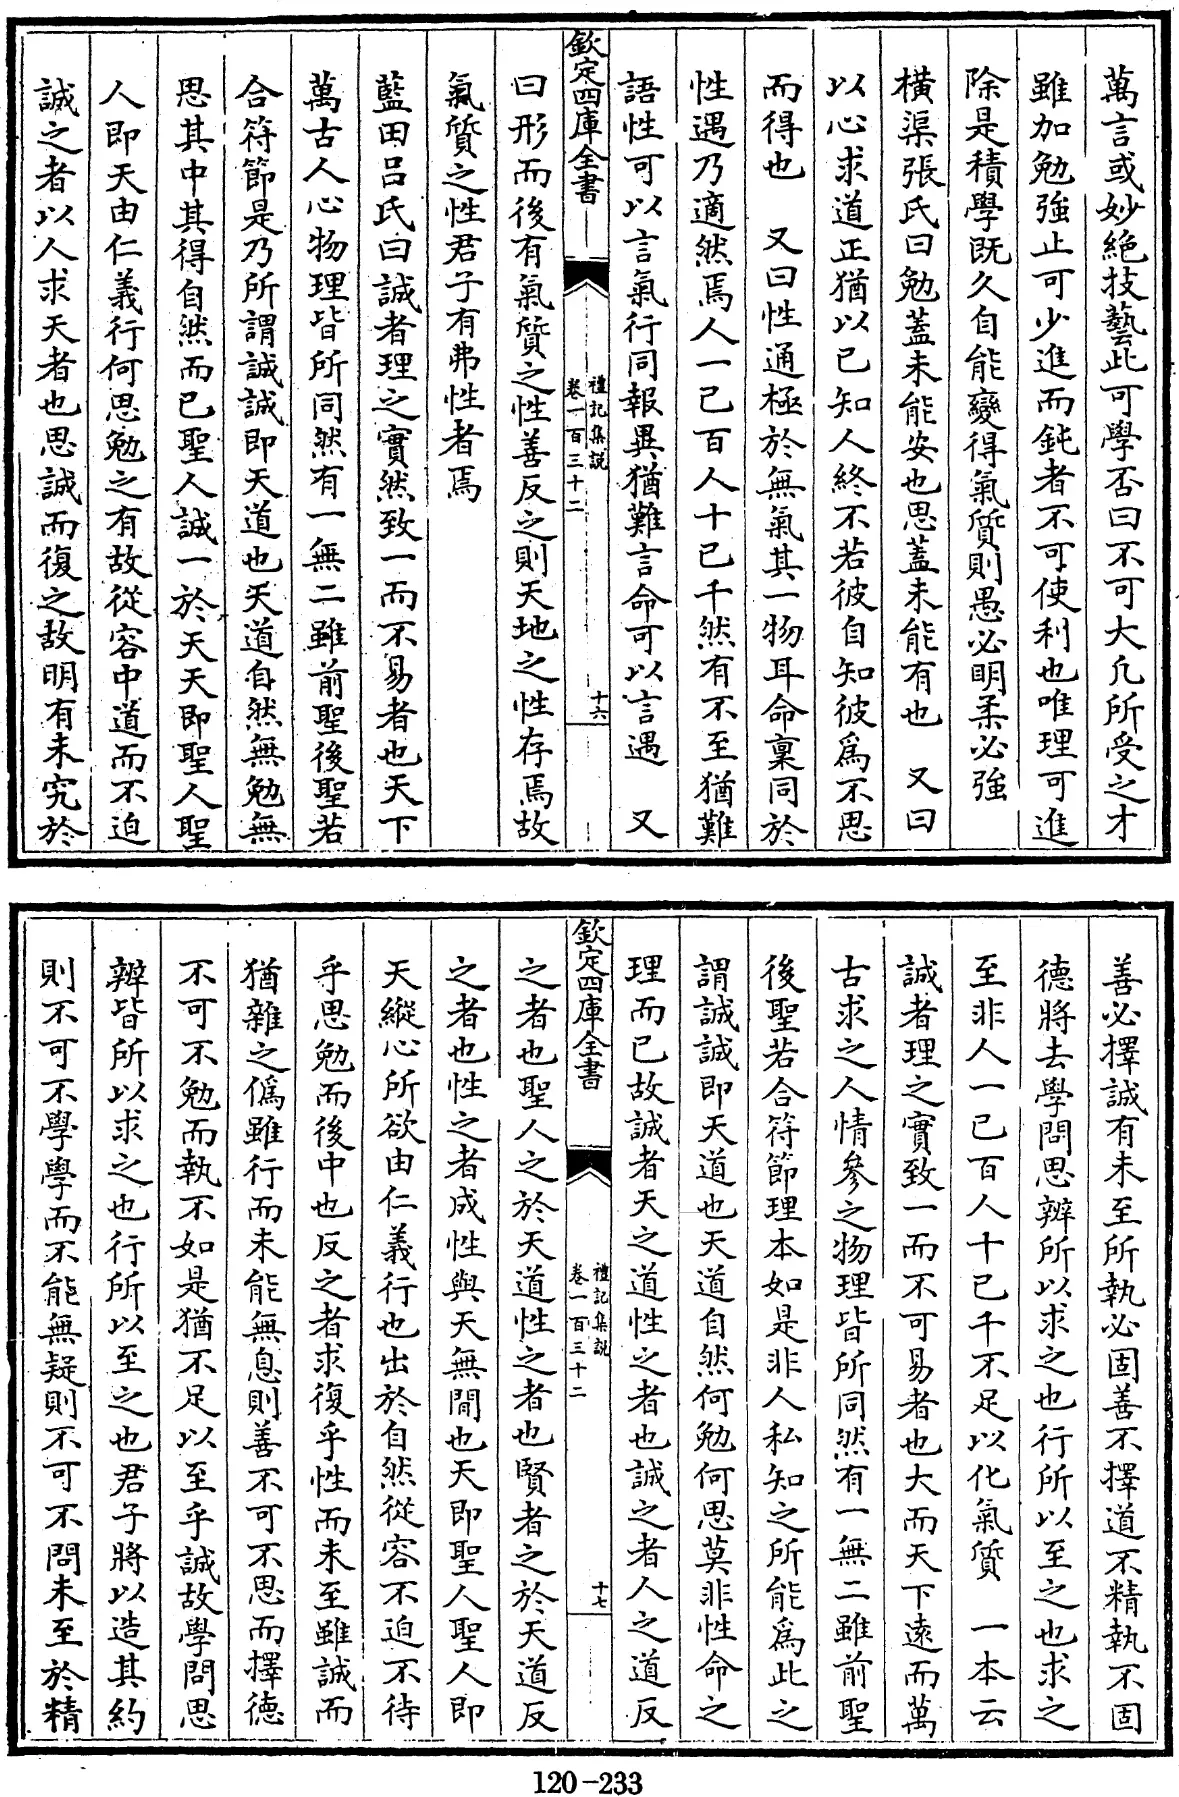 萬言或妙絶技藝此可學否曰不可大凡所受之才
雖加勉強止可少進而鈍者不可使利也唯理可進
除是積學既久自能變得氣質則愚必明柔必強
橫渠張氏曰勉蓋未能安也思蓋未能有也　又曰
以心求道正猶以已知人終不若彼自知彼爲不思
而得也　又曰性通極於無氣其一物耳命稟同於
性遇乃適然焉人一已百人十已千然有不至猶難
語性可以言氣行同報異猶難言命可以言遇　又
欽定四庫全書
禮記集説
卷一百三十二
十六
曰形而後有氣質之性善反之則天地之性存焉故
氣質之性君子有弗性者焉
藍田呂氏曰誠者理之實然致一而不易者也天下
萬古人心物理皆所同然有一無二雖前聖後聖若
合符節是乃所謂誠誠即天道也天道自然無勉無
思其中其得自然而已聖人誠一於天天即聖人聖
人即天由仁義行何思勉之有故從容中道而不迫
誠之者以人求天者也思誠而復之故明有未究於
善必擇誠有未至所執必固善不擇道不精執不固
德將去學問思辨所以求之也行所以至之也求之
至非人一已百人十已千不足以化氣質　一本云
誠者理之實致一而不可易者也大而天下遠而萬
古求之人情參之物理皆所同然有一無二雖前聖
後聖若合符節理本如是非人私知之所能爲此之
謂誠誠即天道也天道自然何勉何思莫非性命之
理而已故誠者天之道性之者也誠之者人之道反
欽定四庫全書
禮記集説
卷一百三十二
十七
之者也聖人之於天道性之者也賢者之於天道反
之者也性之者成性與天無間也天即聖人聖人即
天縱心所欲由仁義行也出於自然從容不迫不待
乎思勉而後中也反之者求復乎性而未至雖誠而
猶雜之僞雖行而未能無息則善不可不思而擇德
不可不勉而執不如是猶不足以至乎誠故學問思
辨皆所以求之也行所以至之也君子將以造其約
則不可不學學而不能無疑則不可不問未至於精
120-233